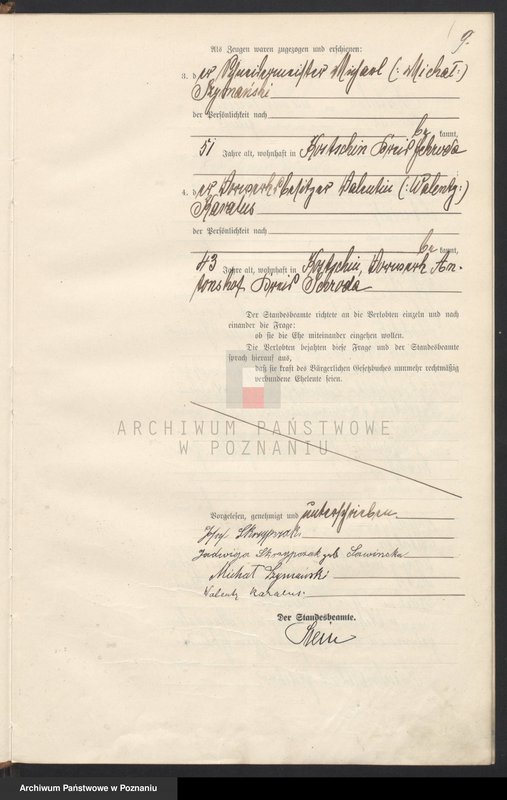 9.
Als Zeugen waren zugezogen und erschienen:
3. der Schneidermeister Michael (: Michał :)
Szymański
der Persönlichkeit nach
be kannt,
51 Jahre alt, wohnhaft in Kostschin Kreis Schroda
4. der Vorwerksbesitzer Valentin (: Walenty :)
Karalus
der Persönlichkeit nach
be kannt,
43 Jahre alt, wohnhaft in Kostschin, Vorwerk An-
tonshof Kreis Schroda
Der Standesbeamte richtete an die Verlobten einzeln und nach
einander die Frage:
ob sie die Ehe miteinander eingehen wollen.
Die Verlobten bejahten diese Frage und der Standesbeamte
sprach hierauf aus,
daß sie kraft des Bürgerlichen Gesetzbuches nunmehr rechtmäßig
verbundene Eheleute seien.
ARCHIWUM PAŃSTWOWE
W POZNANIU
Vorgelesen, genehmigt und unterschrieben
Józef Skrzypczak
Jadwiga Skrzypczak geb Sawińska
Michał Szymański
Walenty Karalus.
Der Standesbeamte.
Archiwum Państwowe w Poznaniu